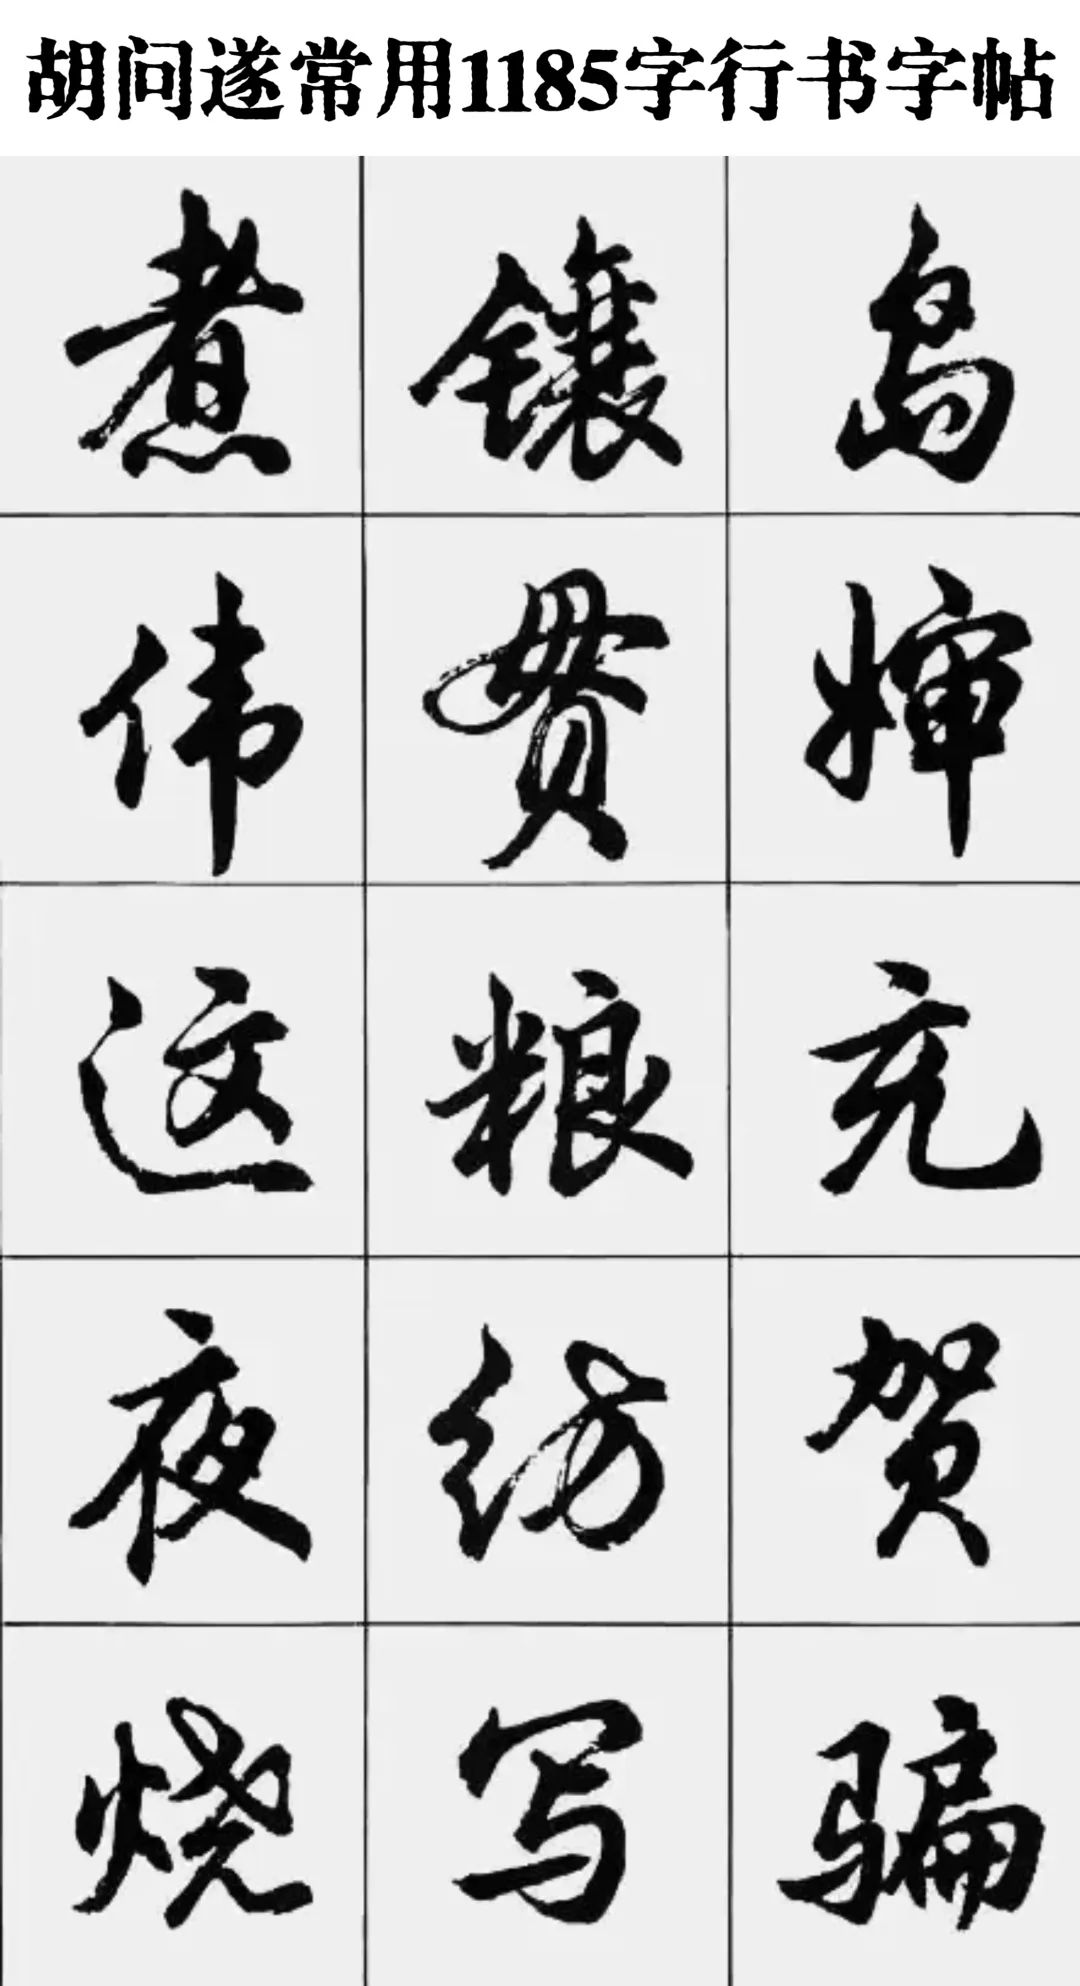 胡问遂常用1185字行书字帖
煮 镶 岛
伟 贯 婶
这 粮 充
夜 纺 贺
烧 写 骗